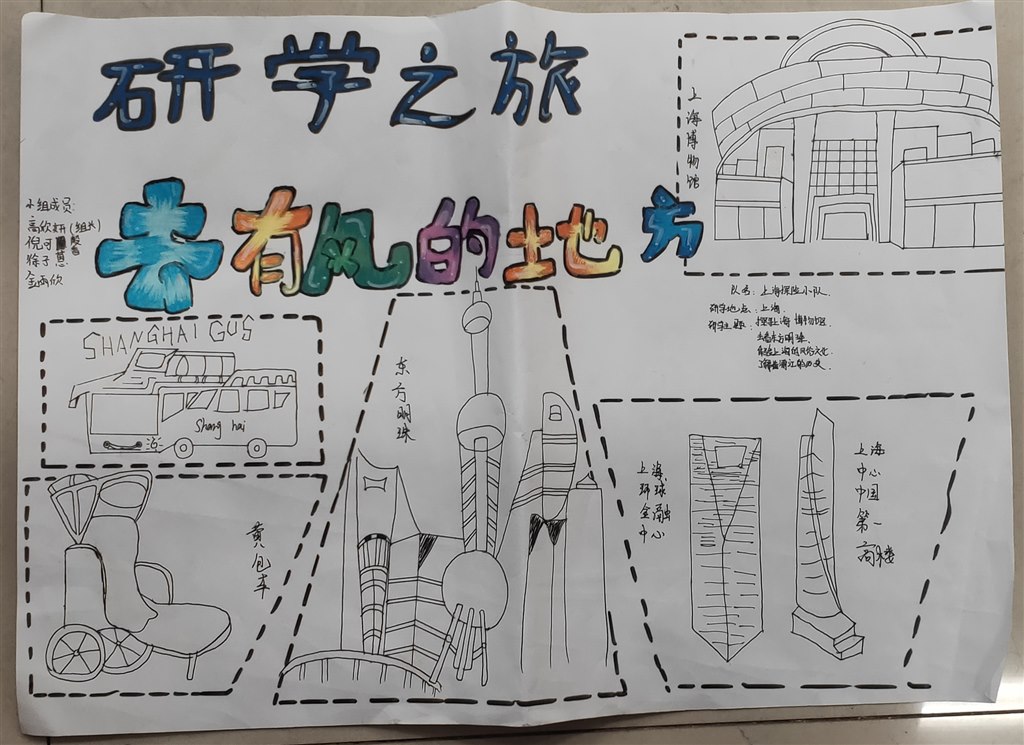 研学之旅
去有风的地方
上海博物馆
小组成员:
高欣妍(组长)
倪可馨
徐子蕙
金雨欣
队名:上海探险小队.
研学地点:上海.
研学主题:探索上海博物馆.
去看东方明珠.
体验上海的风俗文化.
了解黄浦江的历史
SHANGHAI GUS
Shang hai
东方明珠
黄包车
上海
环球
金融
中心
上海
中心
中国
第一
高楼